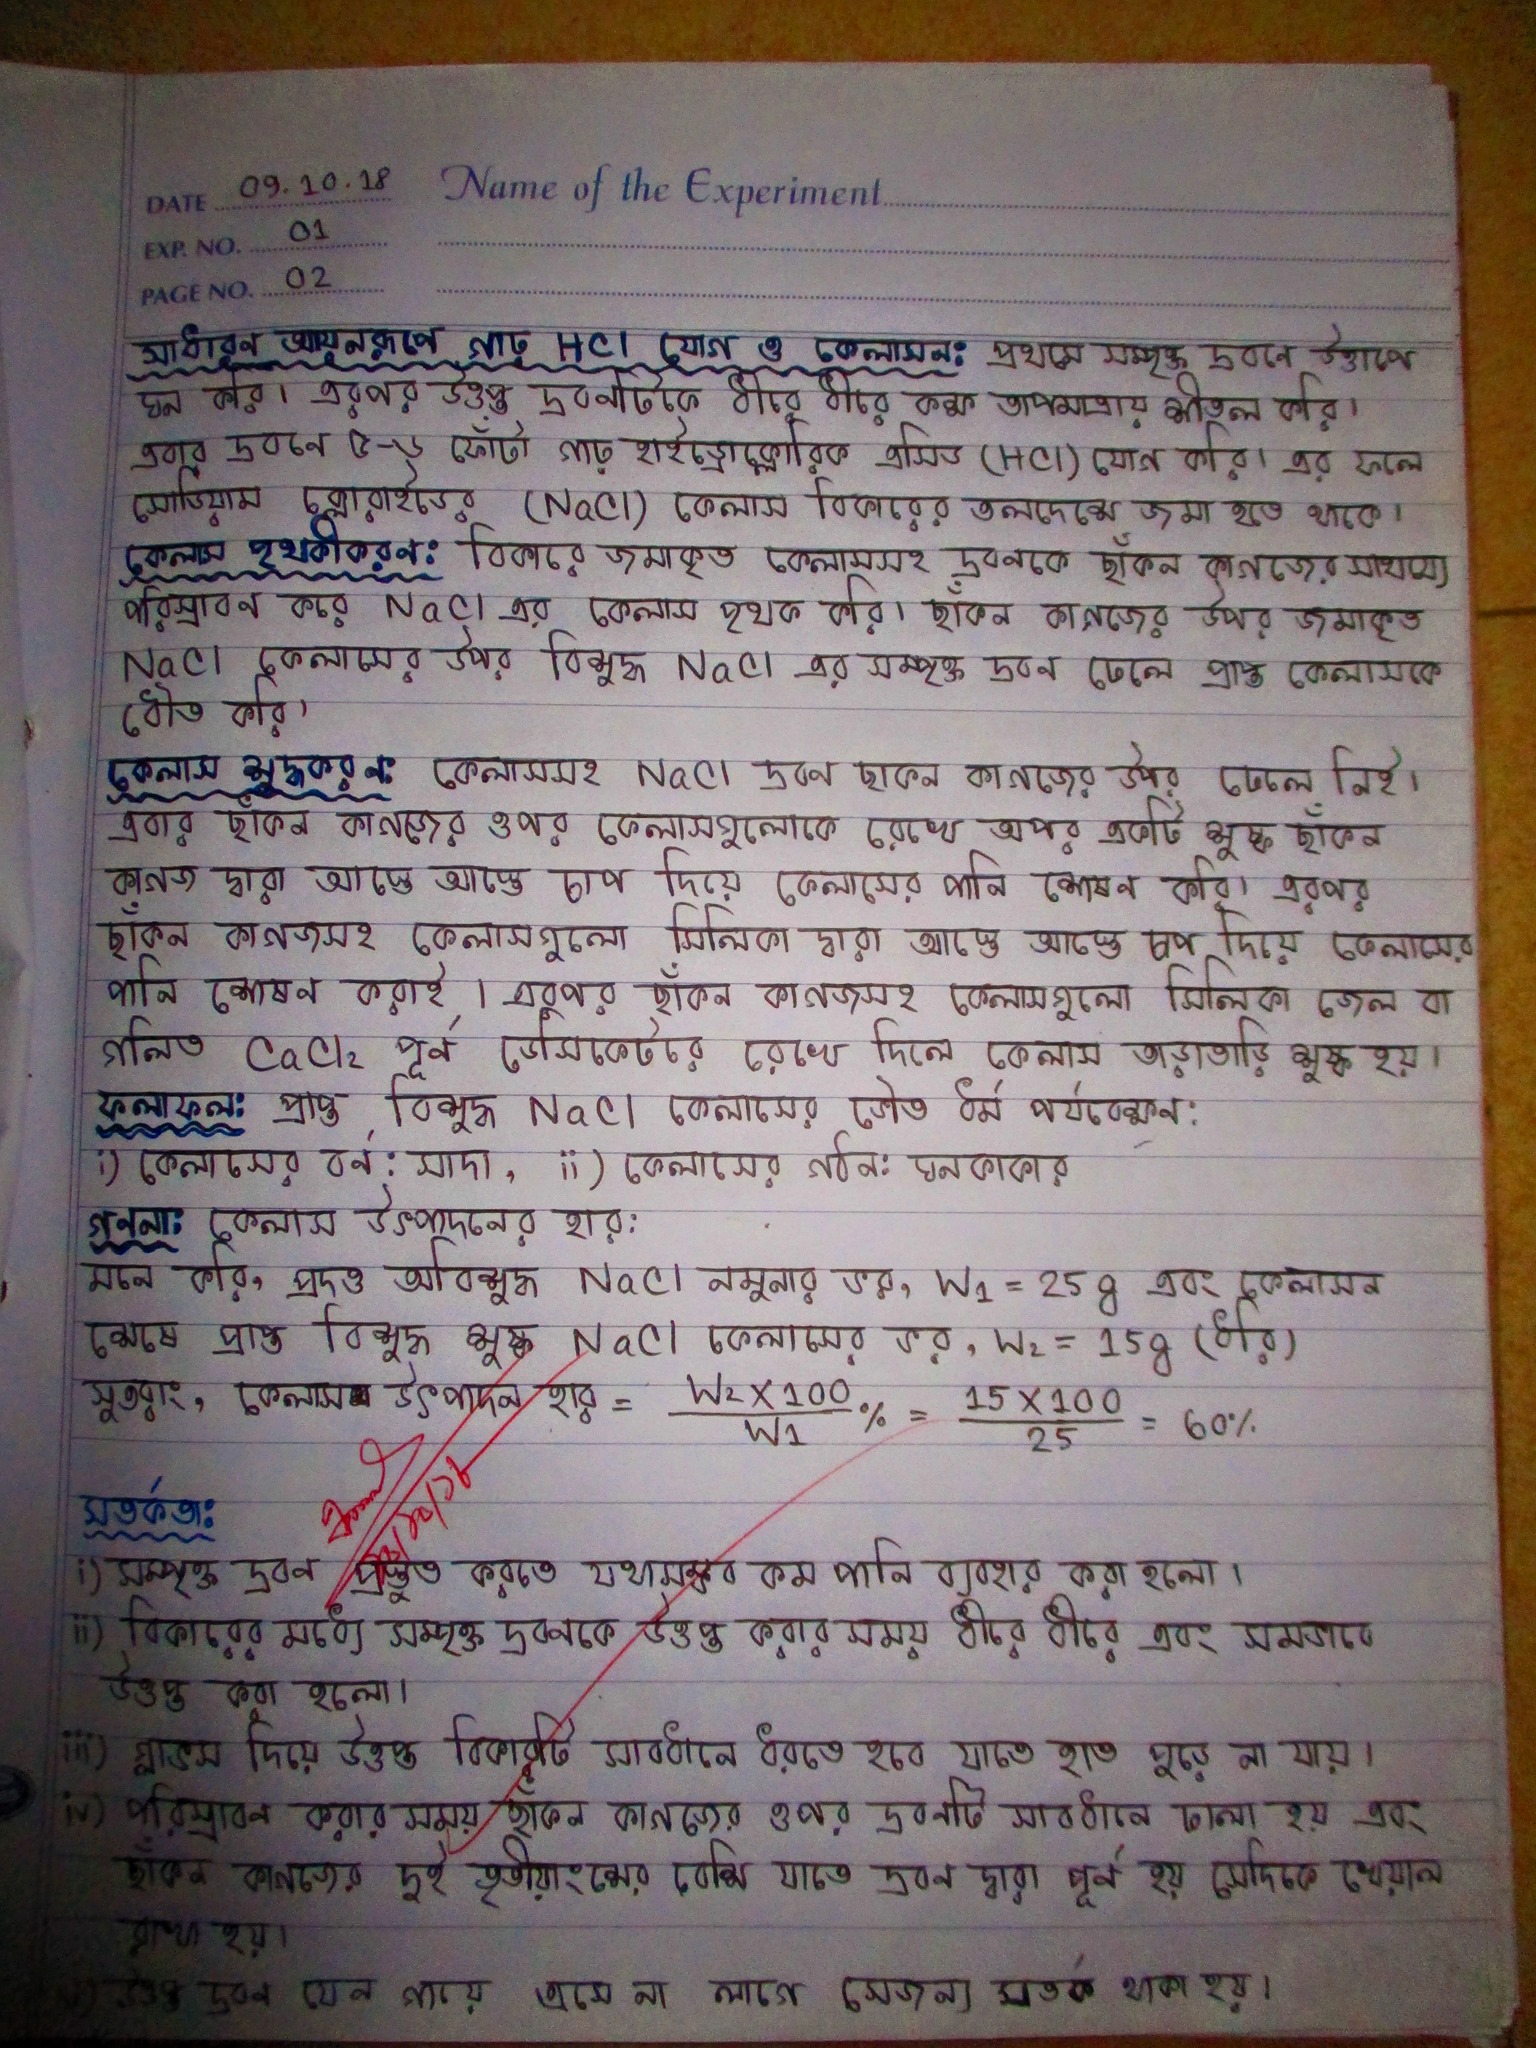 DATE 09.10.18 Name of the Experiment
EXP. NO. 01
PAGE NO. 02
সাধারন আয়নরূপে গাঢ় HCl যোগ ও কেলাসন: প্রথমে সম্পৃক্ত দ্রবনে উত্তাপে
ঘন করি। এরপর উত্তপ্ত দ্রবনটিকে ধীরে ধীরে কক্ষ তাপমাত্রায় শীতল করি।
এবার দ্রবনে ৫-৬ ফোঁটা গাঢ় হাইড্রোক্লোরিক এসিড (HCl) যোগ করি। এর ফলে
সোডিয়াম ক্লোরাইডের (NaCl) কেলাস বিকারের তলদেশে জমা হতে থাকে।
কেলাস পৃথকীকরন: বিকারে জমাকৃত কেলাসসহ দ্রবনকে ছাঁকন কাগজের মাধ্যমে
পরিস্রাবন করে NaCl এর কেলাস পৃথক করি। ছাঁকন কাগজের উপর জমাকৃত
NaCl কেলাসের উপর বিশুদ্ধ NaCl এর সম্পৃক্ত দ্রবন ঢেলে প্রাপ্ত কেলাসকে
ধৌত করি।
কেলাস শুদ্ধকরন: কেলাসসহ NaCl দ্রবণ ছাকন কাগজের উপর ঢেলে নিই।
এবার ছাঁকন কাগজের ওপর কেলাসগুলোকে রেখে অপর একটি শুষ্ক ছাঁকন
কাগজ দ্বারা আস্তে আস্তে চাপ দিয়ে কেলাসের পানি শোষন করি। এরপর
ছাঁকন কাগজসহ কেলাসগুলো সিলিকা দ্বারা আস্তে আস্তে চাপ দিয়ে কেলাসের
পানি শোষন করাই। এরপর ছাঁকন কাগজসহ কেলাসগুলো সিলিকা জেল বা
গলিত CaCl₂ পূর্ন ডেসিকেটরে রেখে দিলে কেলাস তাড়াতাড়ি শুষ্ক হয়।
ফলাফল: প্রাপ্ত বিশুদ্ধ NaCl কেলাসের ভৌত ধর্ম পর্যবেক্ষন:
i) কেলাসের বর্ন: সাদা, ii) কেলাসের গঠন: ঘনকাকার
গননা: কেলাস উৎপাদনের হার:
মনে করি, প্রদত্ত অবিশুদ্ধ NaCl নমুনার ভর, W₁ = 25g এবং কেলাসন
শেষে প্রাপ্ত বিশুদ্ধ শুষ্ক NaCl কেলাসের ভর, W₂ = 15g (ধরি)
সুতরাং, কেলাস উৎপাদন হার = W₂ X 100 / W₁ % = 15 X 100 / 25 = 60%
সতর্কতা:
i) সম্পৃক্ত দ্রবন প্রস্তুত করতে যথাসম্ভব কম পানি ব্যবহার করা হলো।
ii) বিকারের মধ্যে সম্পৃক্ত দ্রবনকে উত্তপ্ত করার সময় ধীরে ধীরে এবং সমভাবে
উত্তপ্ত করা হলো।
iii) গ্লাভস দিয়ে উত্তপ্ত বিকারটি সাবধানে ধরতে হবে যাতে হাত পুড়ে না যায়।
iv) পরিস্রাবন করার সময় ছাঁকন কাগজের ওপর দ্রবনটি সাবধানে ঢালা হয় এবং
ছাঁকন কাগজের দুই তৃতীয়াংশের বেশি যাতে দ্রবন দ্বারা পূর্ন হয় সেদিকে খেয়াল
রাখা হয়।
উত্তপ্ত দ্রবন যেন গায়ে এসে না লাগে সেজন্য সতর্ক থাকা হয়।